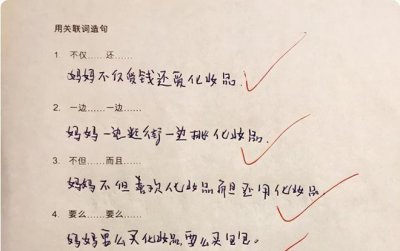 用关联词造句
1. 不仅……还……
妈妈不仅爱钱还爱化妆品.
2. 一边……一边……
妈妈一边逛街一边挑化妆品.
3. 不但……而且……
妈妈不但喜欢化妆品而且还用化妆品.
4. 要么……要么……
妈妈要么买化妆品,要么买包包。